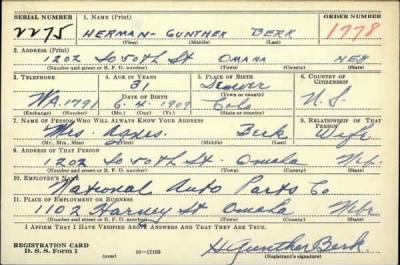 SERIAL NUMBER 1. NAME (Print) ORDER NUMBER
2275 HERMAN - GUNTHER BERK 1778
(First) (Middle) (Last)
2. ADDRESS (Print)
1202 So 50TH St OMAHA NEB
(Number and street or R. F. D. number) (Town) (County) (State)
3. TELEPHONE 4. AGE IN YEARS 5. PLACE OF BIRTH 6. COUNTRY OF CITIZENSHIP
31 Denver
DATE OF BIRTH (Town or county)
WA. 1791 6 4 1909 Colo U.S.
(Exchange) (Number) (Mo.) (Day) (Yr.) (State or country)
7. NAME OF PERSON WHO WILL ALWAYS KNOW YOUR ADDRESS 8. RELATIONSHIP OF THAT PERSON
Mrs. Berk Wife
(Mr., Mrs., Miss) (First) (Middle) (Last)
9. ADDRESS OF THAT PERSON
1202 So 50th St. Omaha Neb.
(Number and street or R. F. D. number) (Town) (County) (State)
10. EMPLOYER'S NAME
National Auto Parts Co
11. PLACE OF EMPLOYMENT OR BUSINESS
1102 Harney St Omaha Neb
(Number and street or R. F. D. number) (Town) (County) (State)
I AFFIRM THAT I HAVE VERIFIED ABOVE ANSWERS AND THAT THEY ARE TRUE.
REGISTRATION CARD
D. S. S. Form 1 (over) 16-17105 H Gunther Berk.
(Registrant's signature)